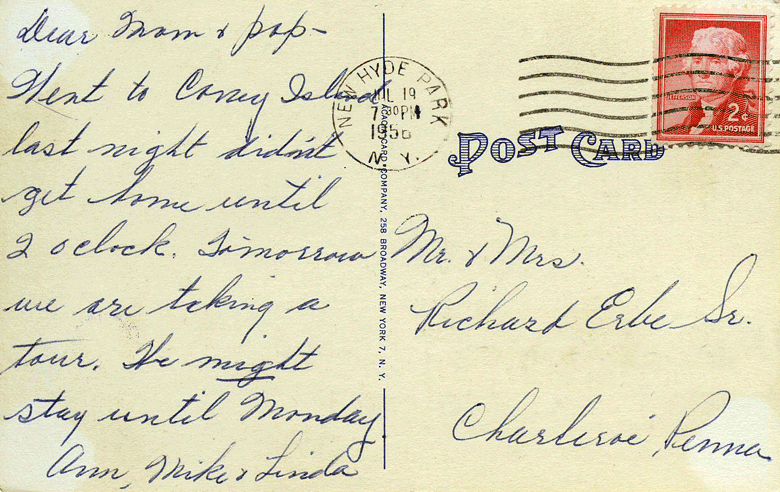 Dear Mom & pop-
Went to Coney Island
last night didn't
get home until
2 oclock. Tomorrow
we are taking a
tour. We might
stay until Monday
Ann, Mike & Linda
NEW HYDE PARK
JUL 19
7 30 PM
1956
N. Y.
JEFFERSON
2¢
U.S. POSTAGE
POST CARD
CARD COMPANY, 258 BROADWAY, NEW YORK 7, N. Y.
Mr. & Mrs.
Richard Erbe Sr.
Charleroi, Penna